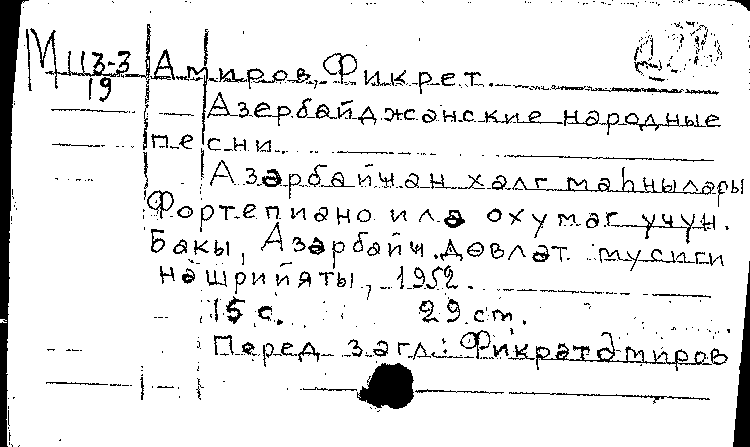 М 113-3 Амиров, Фикрет.
19
Азербайджанские народные
песни.
Азәрбайҹан халг маһнылары
Фортепиано илә охумаг үчүн.
Бакы, Азәрбайҹ. дөвләт мусиги
нәшрийяты, 1952.
15 с. 29 cm.
Перед загл.: Фикрәт Әмиров